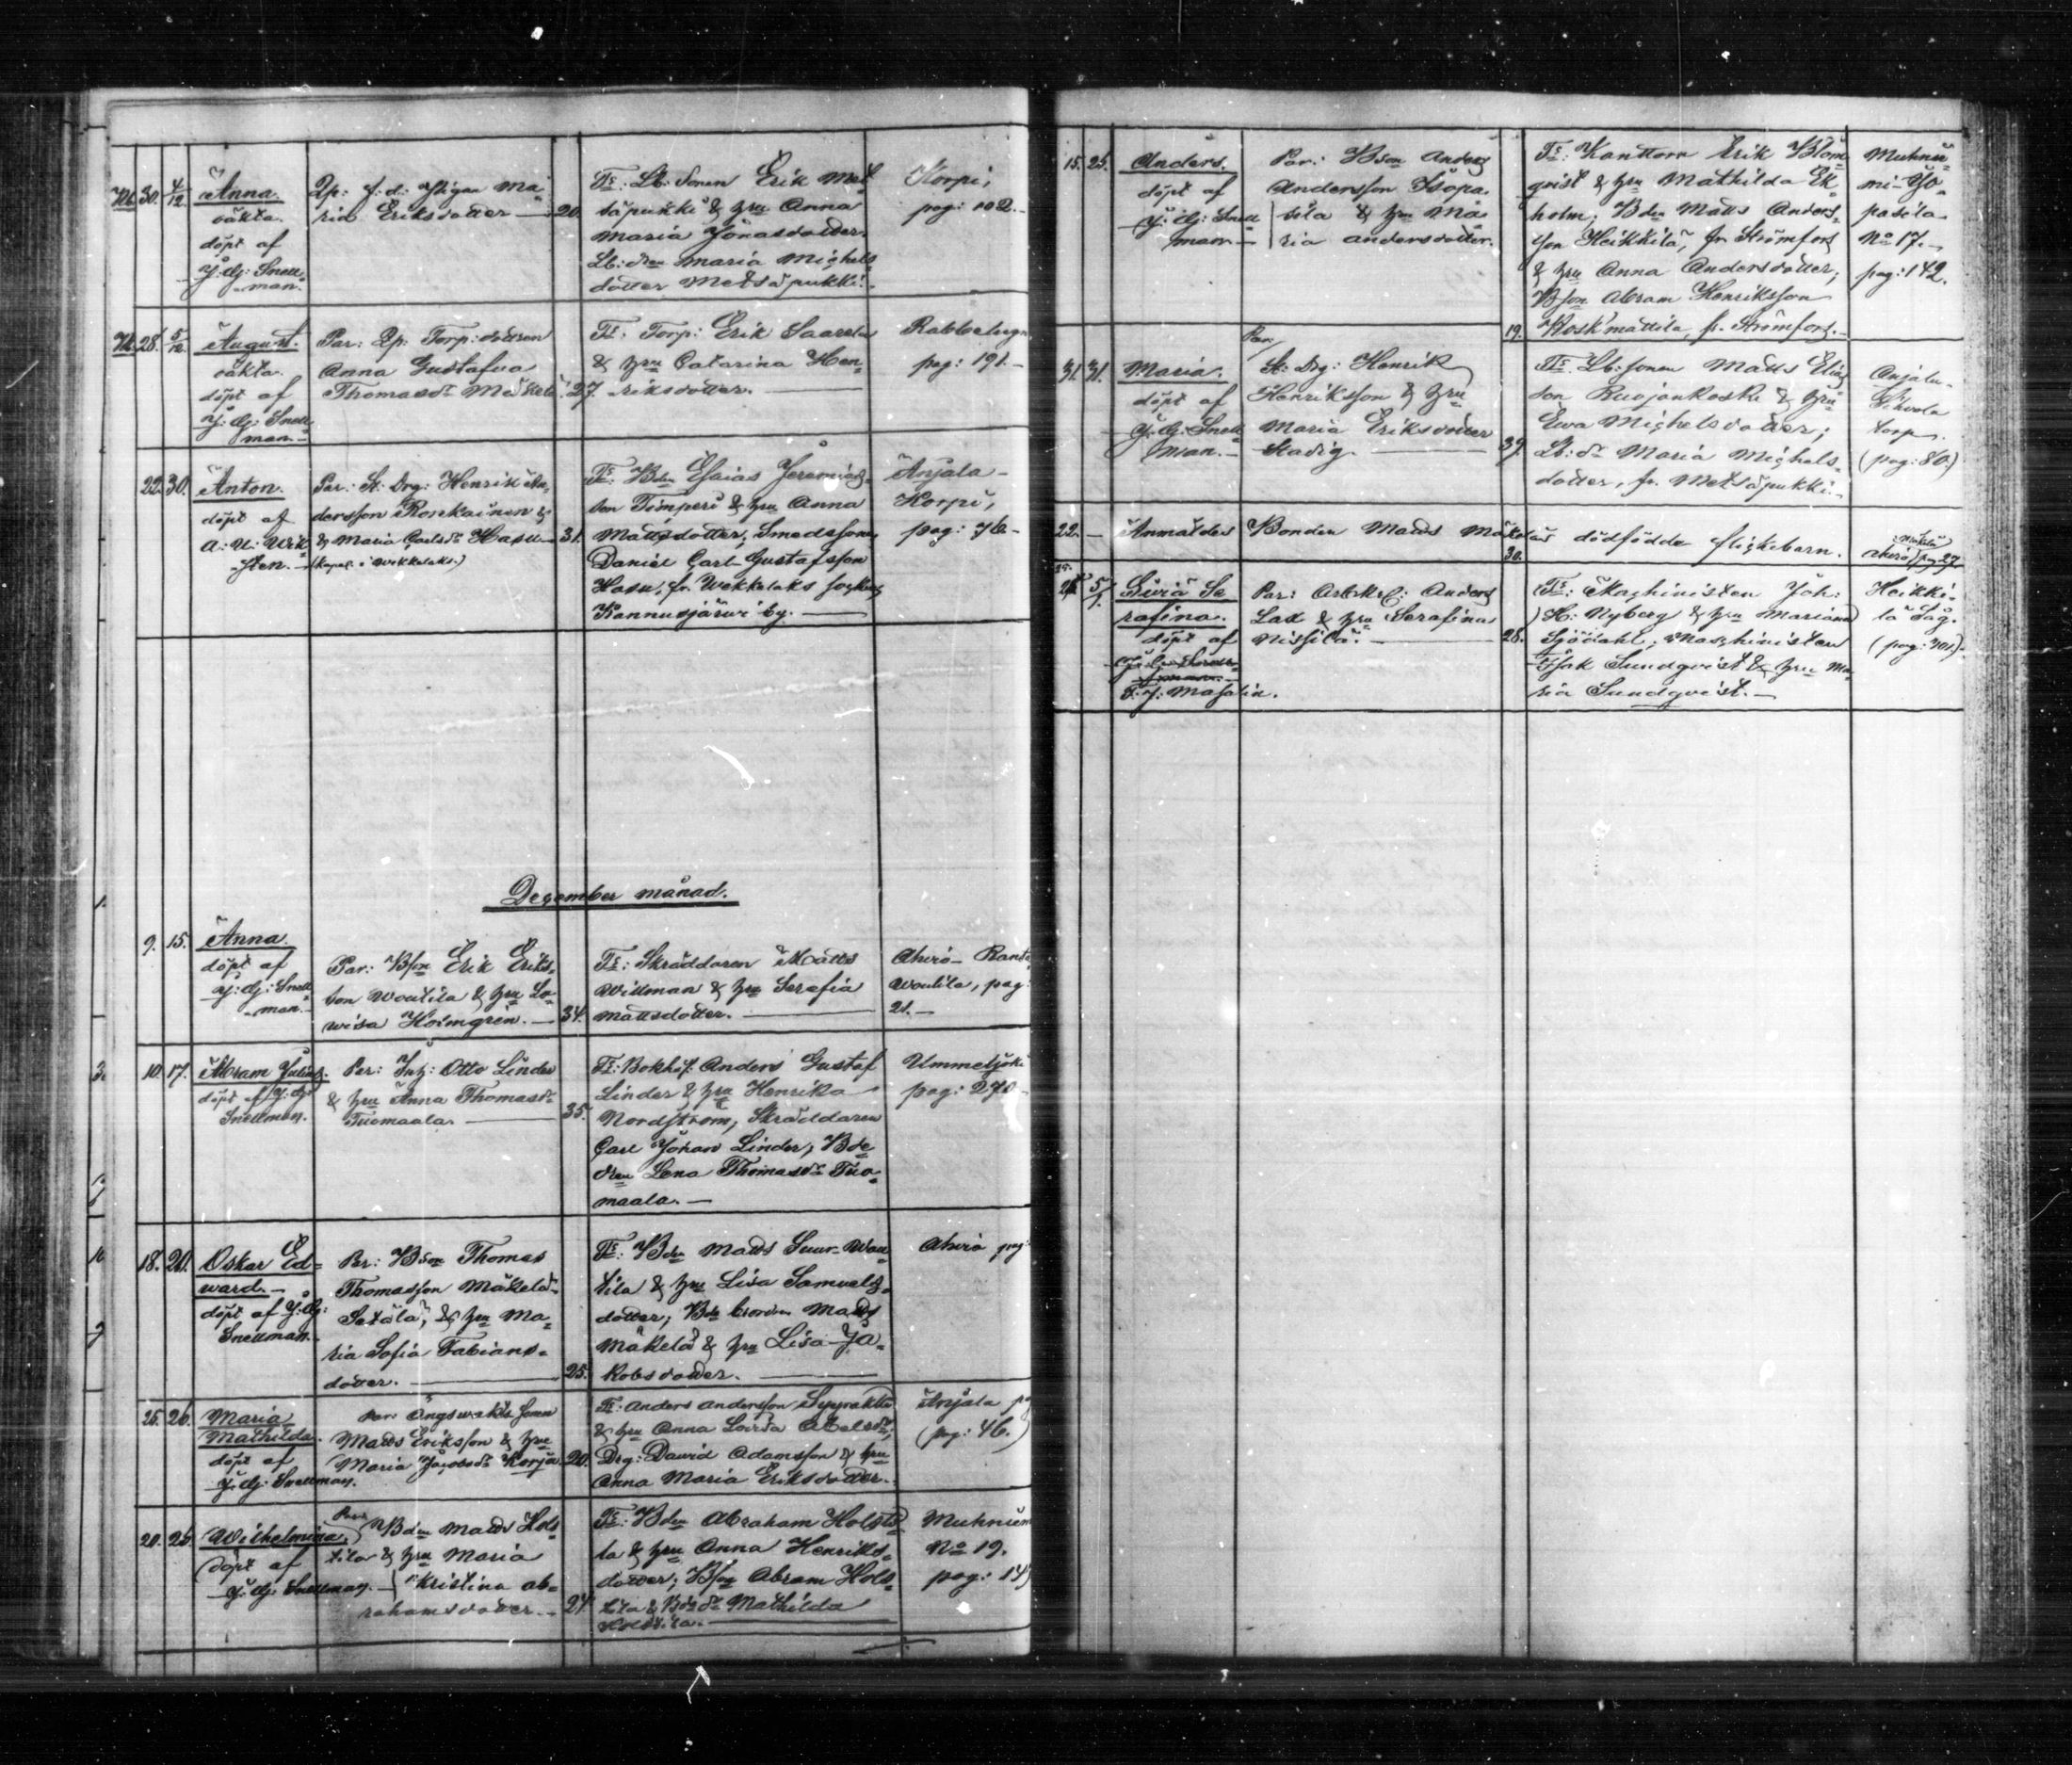 30. 4/12 Anna.
oäkta.
döpt af
J: G: Snell-
man.
Qp: f. d: Pigan Ma-
ria Eriksdotter — 20.
Fr: Lb: Sonen Erik Met-
säpukki & hru Anna
Maria Jonasdotter.
Lb: dren Maria Michels-
dotter Metsäpukki.
Korpi,
pag: 102.
28. 5/12 August.
oäkta.
döpt af
J: G: Snell-
man.
Par: Qp: Torp: dottren
Anna Gustafva
Thomasdr 27.
Fr: Torp: Erik Saarela
& hru Catarina Hen-
riksdotter.
pag: 191.
22. 30. Anton.
döpt af
A: U: Wik-
sten.
Par: St: Drg: Henrik An-
dersson Ronkainen &
& Maria Carlsdr Hasu — 31.
(kapel. i Wekkelaks.)
Fr: Bden Esaias Jeremias-
son Timperi & hru Anna
Mattsdotter; Smedssonen
Daniel Carl Gustafsson
Hasu, fr. Wekkelaks socken,
Kannusjärwi by.
Anjala-
Korpi,
pag: 76.
December månad.
9. 15. Anna.
döpt af
J: G: Snell-
man.
Par: Bson Erik Eriks-
son Woutila & hru Lo-
wisa Holmgrén. — 34.
Fr: Skräddaren Matts
Willman & hru Serafia
Mattsdotter.
Ahwio-
Woutila, pag:
21.
10. 17. Abram Julius.
döpt af J: G:
Snellman.
Par: Inh: Otto Linder
& hru Anna Thomasdr
Tuomaala. — 35.
Fr: Bokh: Anders Gustaf
Linder & hru Henrika
Nordström, Skräddaren
Carl Johan Linder, Bde
dren Lena Thomasdr Tuo-
maala.
Ummeljoki
pag: 270
18. 20. Oskar Ed-
ward.
döpt af J: G:
Snellman.
Par: Bson Thomas
Thomasson Mäkelä-
Setälä, & hru Ma-
ria Sofia Fabians-
dotter. — 25.
Fr: Bden Matts Suur-Wou-
tila & hru Lisa Samuels-
dotter; Bde brodren Matts
Mäkelä & hru Lisa Ja-
kobsdotter.
Ahwio pag:
25. 26. Maria
Mathilda.
döpt af
J: G: Snellman.
Par: Ängswakts sonen
Matts Eriksson & hru
Maria Jacobsdr Korja 20.
Fr: Anders Andersson
& hru Anna Lovisa Abelsdr;
Drg: Dawid Adamsson & hru
Anna Maria Eriksdotter.
Anjala
(pag: 46.)
20. 26. Wilhelmina.
döpt af
J: G: Snellman.
Par: Bden Matts Hols-
tila & hru Maria
Kristina Ab-
rahamsdotter. — 24.
Fr: Bden Abraham Holsti-
la & hru Anna Henriks-
dotter; Bson Abram Hols-
tila & Bdedr Mathilda
Holstila.
No 19.
15. 25. Anders.
döpt af
J: G: Snell-
man.
Par: Bson Anders
Andersson Isopa-
sila & hru Ma-
ria Andersdotter.
19.
Fr: Kanttorn Erik Blom-
qvist & hru Mathilda Ek-
holm; Bden Matts Anders-
son Heikkilä, fr. Strömfors
& hru Anna Andersdotter;
Bson Abram Henriksson
Koskmattila, fr. Strömfors.
No 17.
pag: 142.
31. 31. Maria.
döpt af
J: G: Snell-
man.
Par:
St: Drg: Henrik
Henriksson & hru
Maria Eriksdotter
Stadig. — 39.
Fr: Lb: sonen Matts Elias-
son Ruojankoski & hru
Ewa Michelsdotter;
Lb: dr Maria Michels-
dotter, fr. Metsäpukki.
Anjala-
torp.
(pag: 80.)
22. — Anmäldes Bonden Matts Mäkeläs dödfödda flickebarn.
30.
Ahwio pag 27
5/1. Siviä Se-
rafina.
döpt af
J: G: Snell-
man.
F. J. Masalin.
Par: Arbetsk: Anders
Lax & hru Serafina
Nissilä. — 28.
Fr: Maskinisten Joh:
H: Nyberg & hru Mariana
Sjödahl; Maskinisten
Isak Sundqvist & hru Ma-
ria Sundqvist.
Heikki-
lä Såg.
(pag: 301)